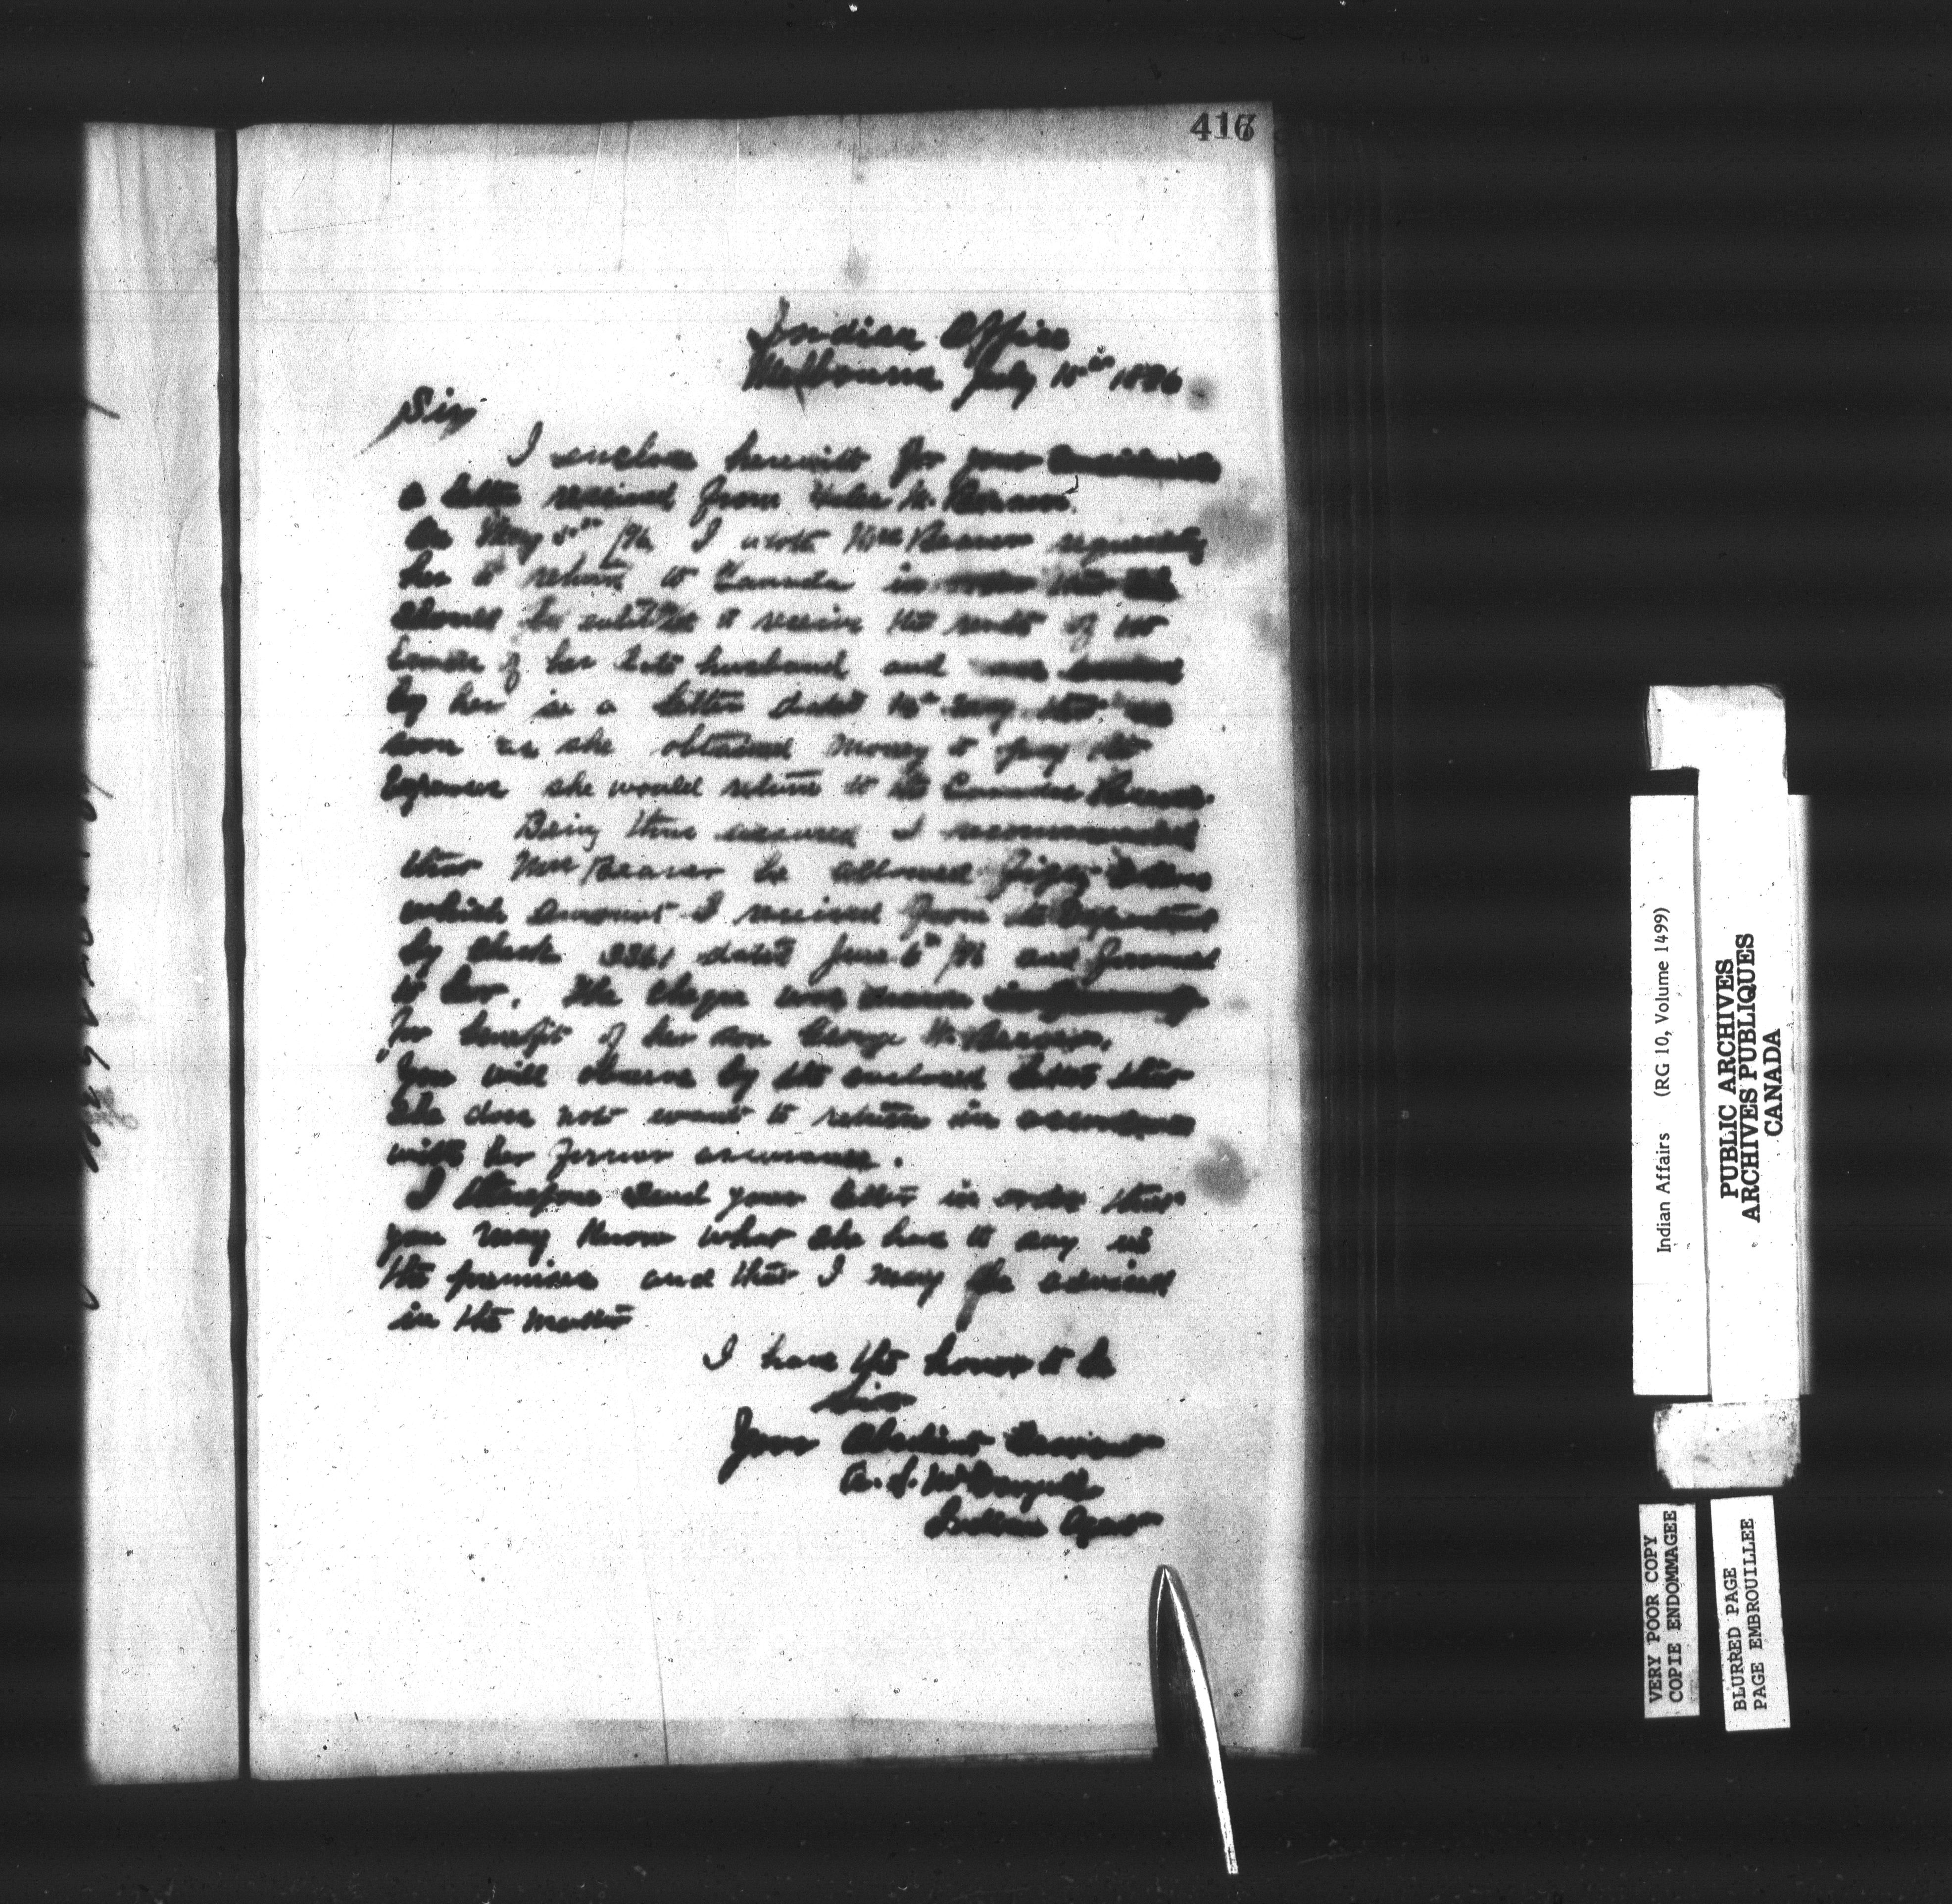 Indian Office
Melbourne July 10th 1896
Sir
I enclose herewith for your consideration
a letter received from M. Beaver.
On May 5th /96 I wrote Mrs Beaver requesting
her to return to Canada in order that she
should be entitled to receive the rents of the
Estate of her late husband and was
by her in a letter dated May that as
soon as she obtained money to pay the
Expenses she would return to the Caradoc Reserve.
Being thus assured I recommended
that Mrs Beaver be allowed dollars
which amount I received from the Department
by check 3361 dated June 6th /96 and forwarded
to her. The cheque was drawn
for benefit of her son George W. Beaver.
You will observe by the enclosed letter that
she does not want to return in accordance
with her former assurance.
I therefore send your letter in order that
you may know what she has to say in
the premises and that I may be advised
in the matter
I have the honor to be
Sir
Your Obedient Servant
A. S. McDougall
Indian Agent
Indian Affairs (RG 10, Volume 1499)
PUBLIC ARCHIVES
ARCHIVES PUBLIQUES
CANADA
VERY POOR COPY
COPIE ENDOMMAGEE
BLURRED PAGE
PAGE EMBROUILLEE